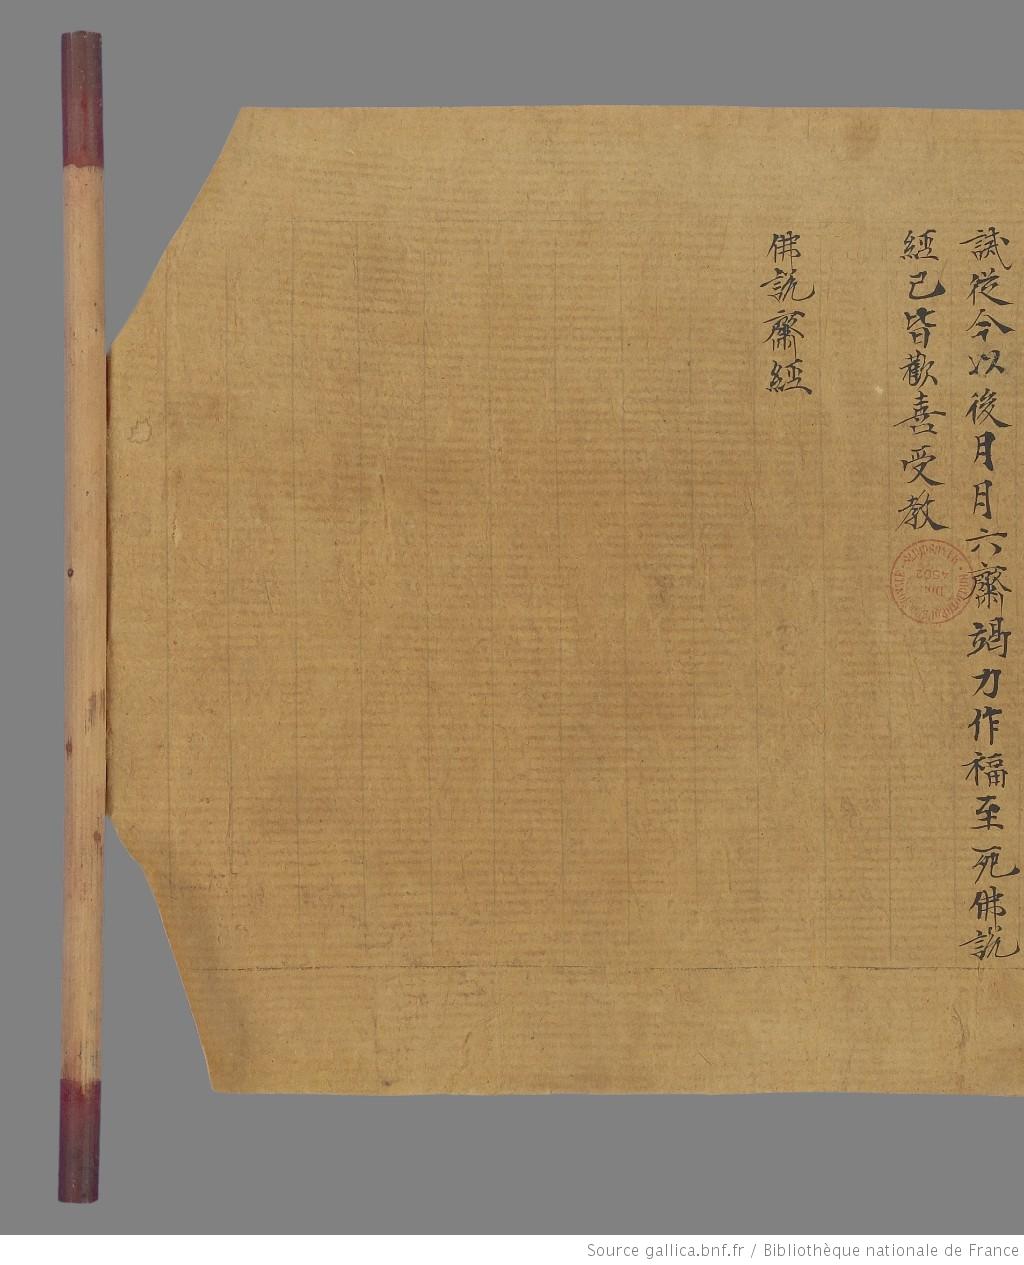 誡從今以後月月六齋竭力作福至死佛說
經已皆歡喜受教
佛說齋經
Source gallica.bnf.fr / Bibliothèque nationale de France